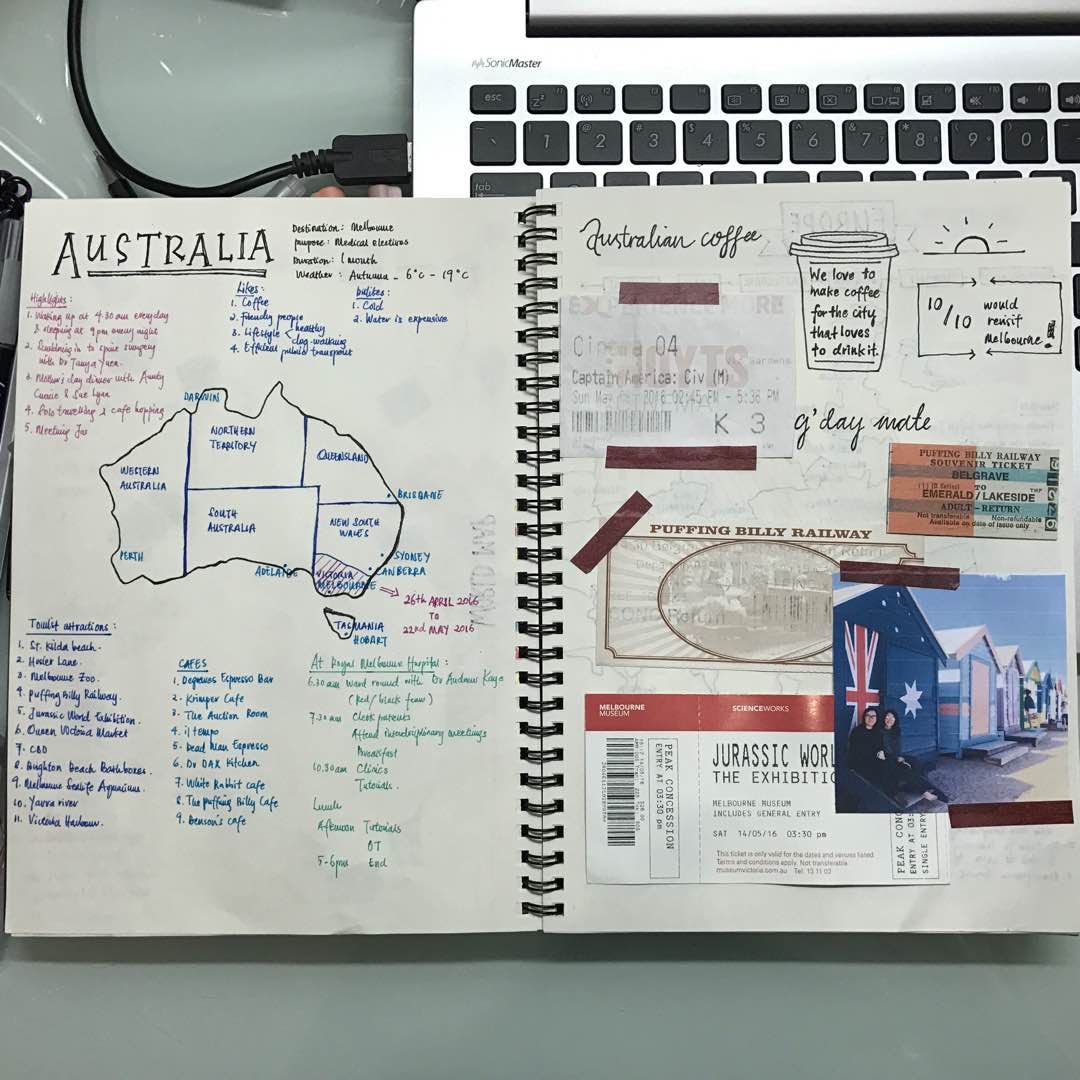 SonicMaster
esc
f1
f2
f3
f4
f5
f6
f7
f8
f9
f10
f11
~
!
1
@
2
#
3
$
4
%
5
^
6
&
7
*
8
(
9
)
0
tab
AUSTRALIA
Destination: Melbourne
purpose: Medical electives
Duration: 1 month
Weather: Autumn - 6°C - 19°C
Highlights:
1. Waking up at 4.30am everyday
& sleeping at 9pm every night
2. Scrubbing in to spine surgery
with Dr Tanya Yuen.
3. Mother's day dinner with Aunty
& Sue Lynn
4. Solo travelling & cafe hopping
5. Meeting Jas
Likes:
1. Coffee
2. Friendly people
3. Lifestyle < healthy
dog-walking
4. Efficient public transport
Dislikes:
1. Cold
2. Water is expensive
DARWIN
NORTHERN
TERRITORY
WESTERN
AUSTRALIA
QUEENSLAND
SOUTH
AUSTRALIA
NEW SOUTH
WALES
BRISBANE
SYDNEY
CANBERRA
PERTH
ADELAIDE
VICTORIA
MELBOURNE
26th APRIL 2016
TO
22nd MAY 2016
TASMANIA
HOBART
Tourist attractions:
1. St. Kilda beach.
2. Hosier Lane.
3. Melbourne Zoo.
4. Puffing Billy Railway.
5. Jurassic World Exhibition.
6. Queen Victoria Market
7. CBD
8. Brighton Beach Bathboxes.
9. Melbourne Sealife Aquarium.
10. Yarra river
11. Victoria Harbour.
CAFES
1. Degraves Espresso Bar
2. Krimper Cafe
3. The Auction Room
4. il tempo
5. Dead Man Espresso
6. Dr DAX Kitchen
7. White Rabbit cafe
8. The puffing Billy Cafe
9. Benson's cafe
At Royal Melbourne Hospital:
6.30am Ward round with Dr Andrew Kaye
(Red/black team)
7.30am Clerk patients
Attend interdisciplinary meetings
Breakfast
10.30am Clinics
Tutorials.
Lunch
Afternoon Tutorials
OT
5-6pm End
WORLD MAP
Australian coffee
EUROPE
We love to
make coffee
for the city
that loves
to drink it.
10/10
would
revisit
Melbourne!
Cinema 04
HOYTS
Gardens
Captain America: Civ (M)
2016 02:45 PM - 5:36 PM
K 3
g'day mate
PUFFING BILLY RAILWAY
SOUVENIR TICKET
BELGRAVE
TO
EMERALD/LAKESIDE
ADULT - RETURN
Not transferable Non-refundable
Available on date of issue only
PUFFING BILLY RAILWAY
MELBOURNE
MUSEUM
SCIENCEWORKS
PEAK CONCESSION
ENTRY AT 03:30 pm
JURASSIC WORL
THE EXHIBITIO
MELBOURNE MUSEUM
INCLUDES GENERAL ENTRY
SAT 14/05/16 03:30 pm
This ticket is only valid for the dates and venues listed
Terms and conditions apply. Not transferable
museumvictoria.com.au Tel. 13 11 02
PEAK CONC
ENTRY AT 03:30
SINGLE ENTRY